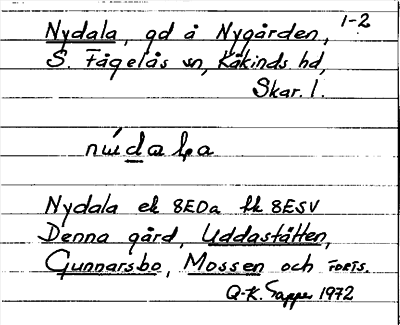 1-2
Nydala, gd å Nygården,
S. Fågelås sn, Kåkinds hd,
Skar. l.
Nydala ek 8E0a fk 8E5V
Denna gård, Uddastätten,
Gunnarsbo, Mossen och FORTS.
Q-K. 1972